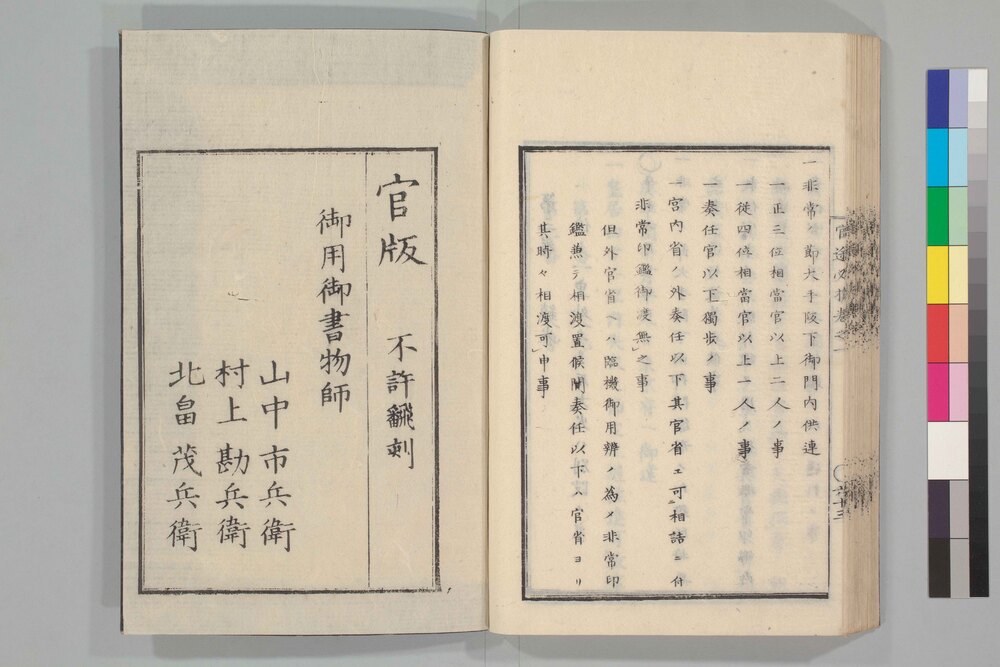 一非常ノ節大手阪下御門内供連
一正三位相當官以上二人ノ事
一從四位相當官以上一人ノ事
一奏任官以下獨歩ノ事
一宮内省ノ外奏任以下其官省エ可相詰ニ付
非常印鑑御渡無之事
但外官省ヘハ臨機御用辨ノ為メ非常印
鑑兼テ相渡置候間奏任以下ハ官省ヨリ
其時々相渡可申事
六十三
官版
不許飜刻
御用御書物師
山中市兵衛
村上勘兵衛
北畠茂兵衛